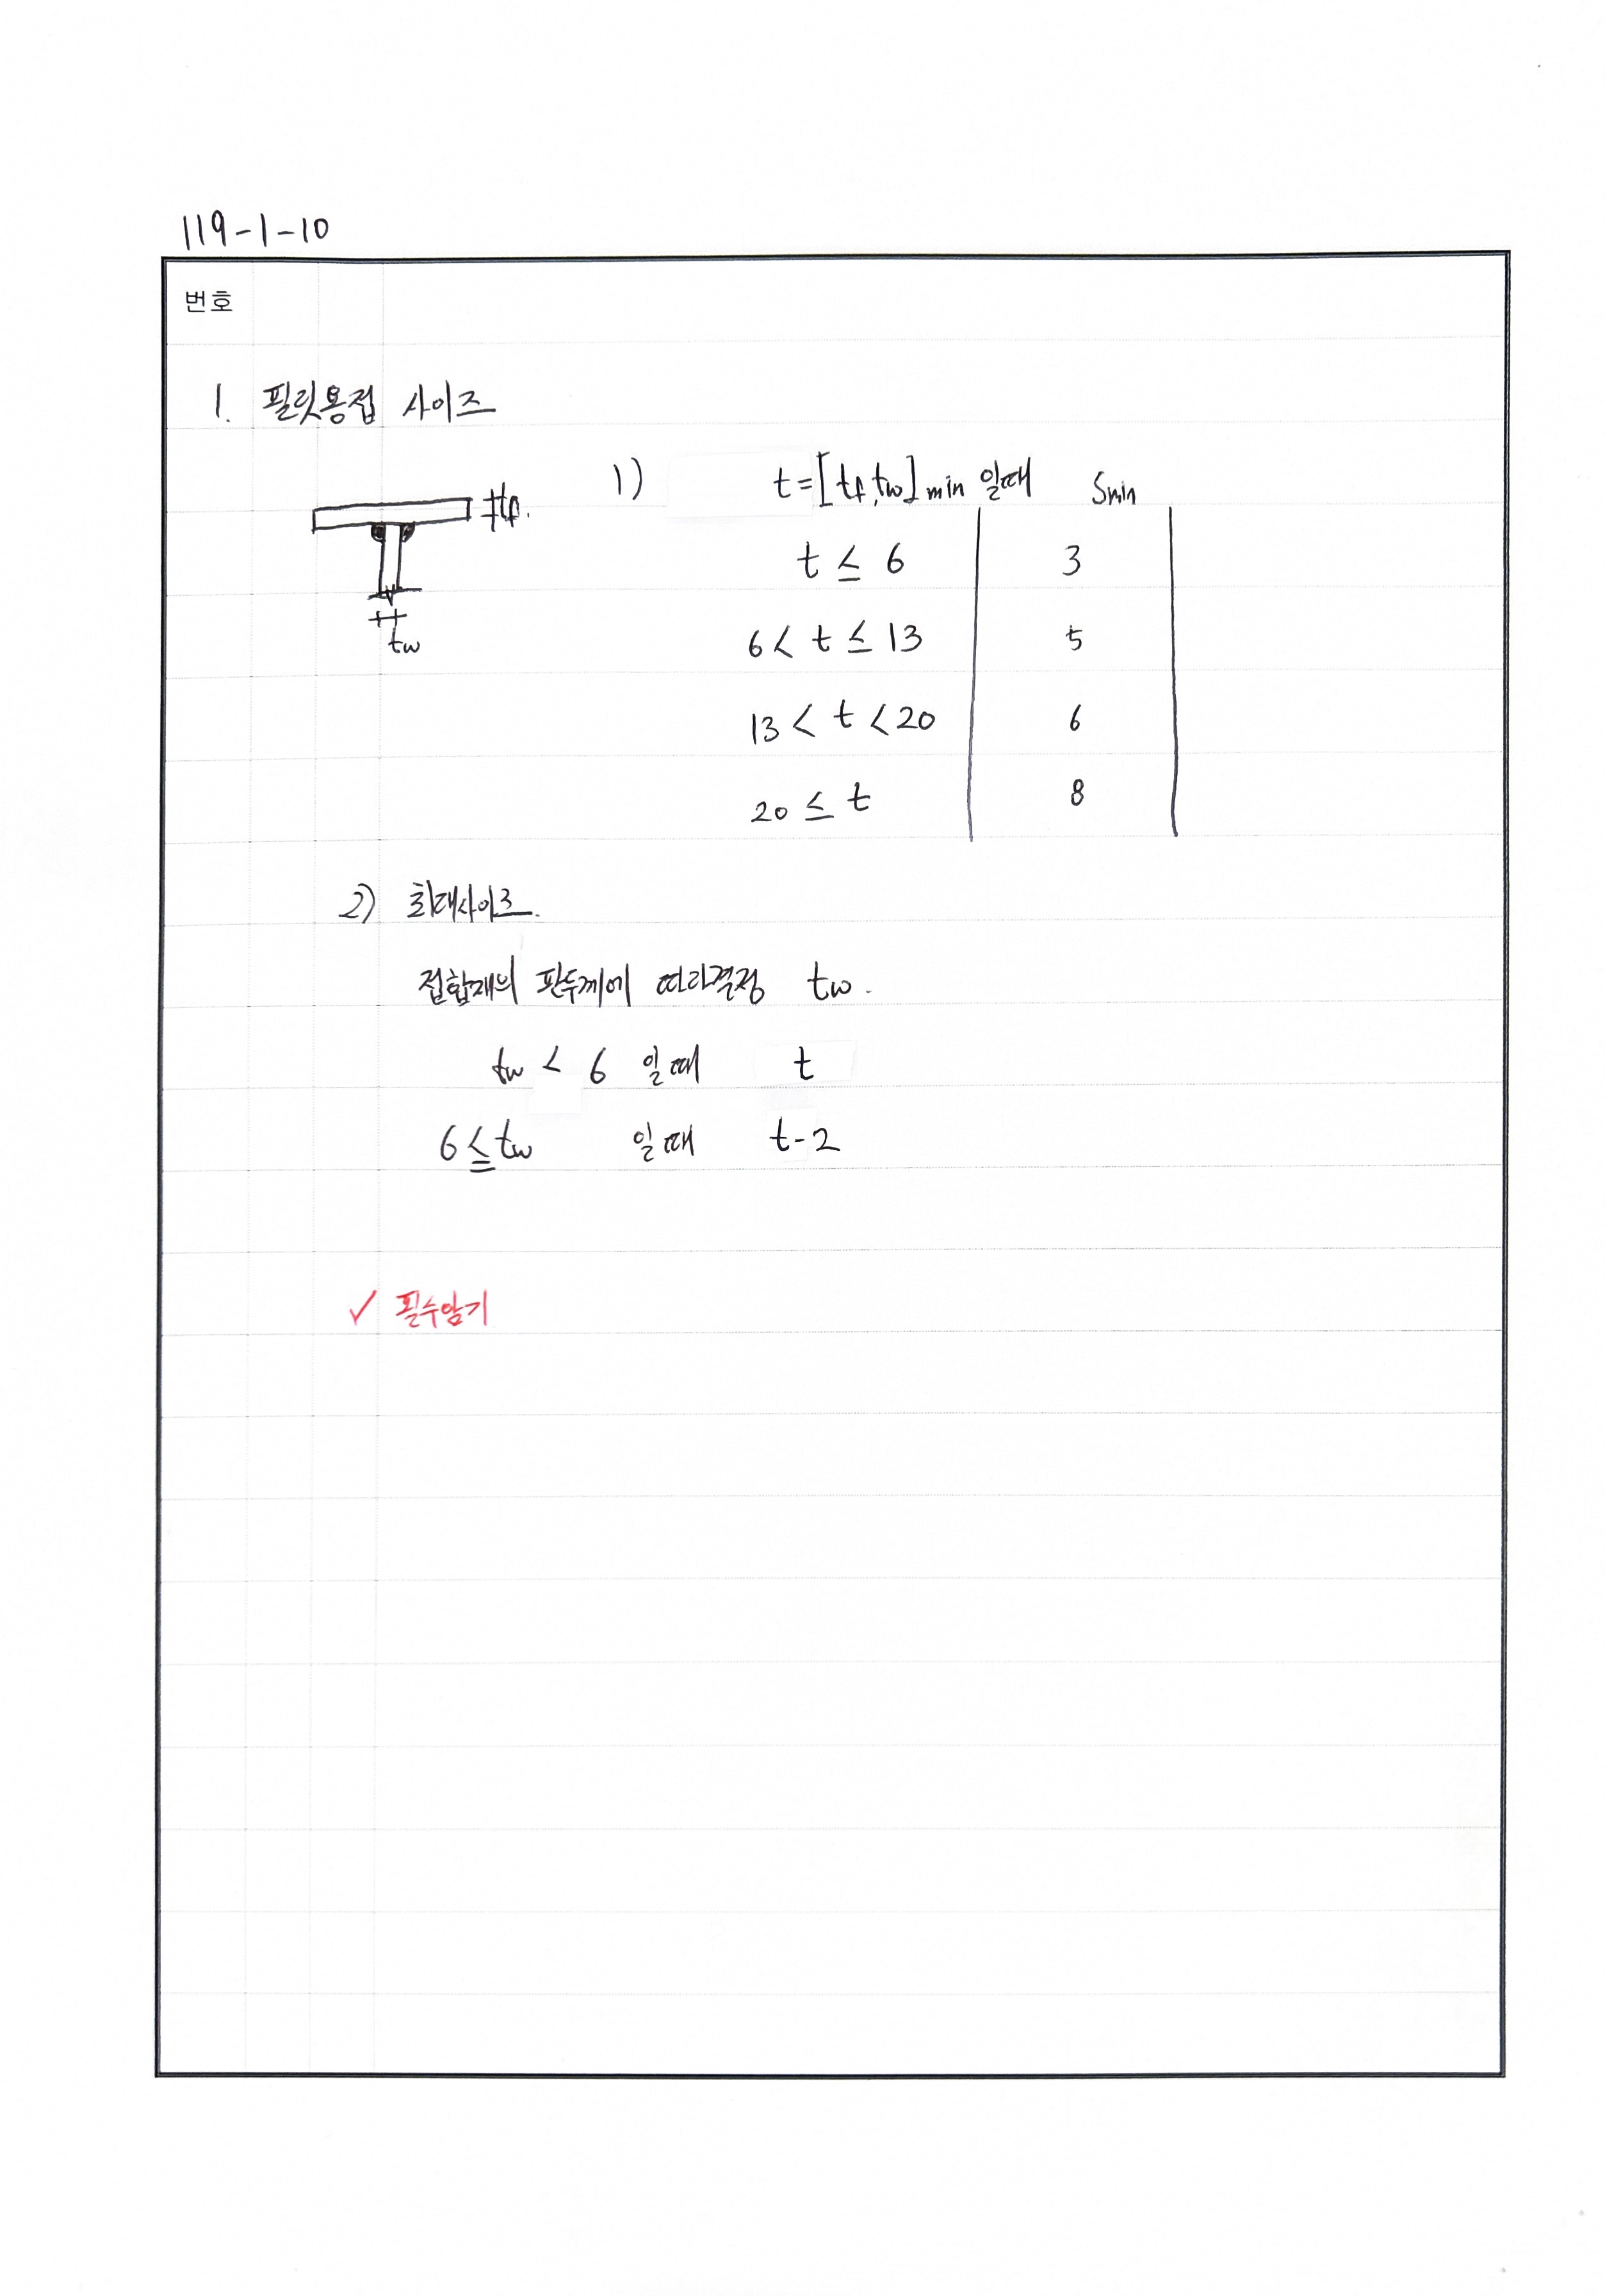 119-1-10
번호
1. 필릿용접 사이즈
1) t=[tf,tw]min 일때 Smin
tf.
tw
t ≤ 6 3
6 < t ≤ 13 5
13 < t < 20 6
20 ≤ t 8
2) 최대사이즈.
접합재의 판두께에 따라결정 tw.
tw < 6 일때 t
6 ≦ tw 일때 t-2
✓ 필수암기